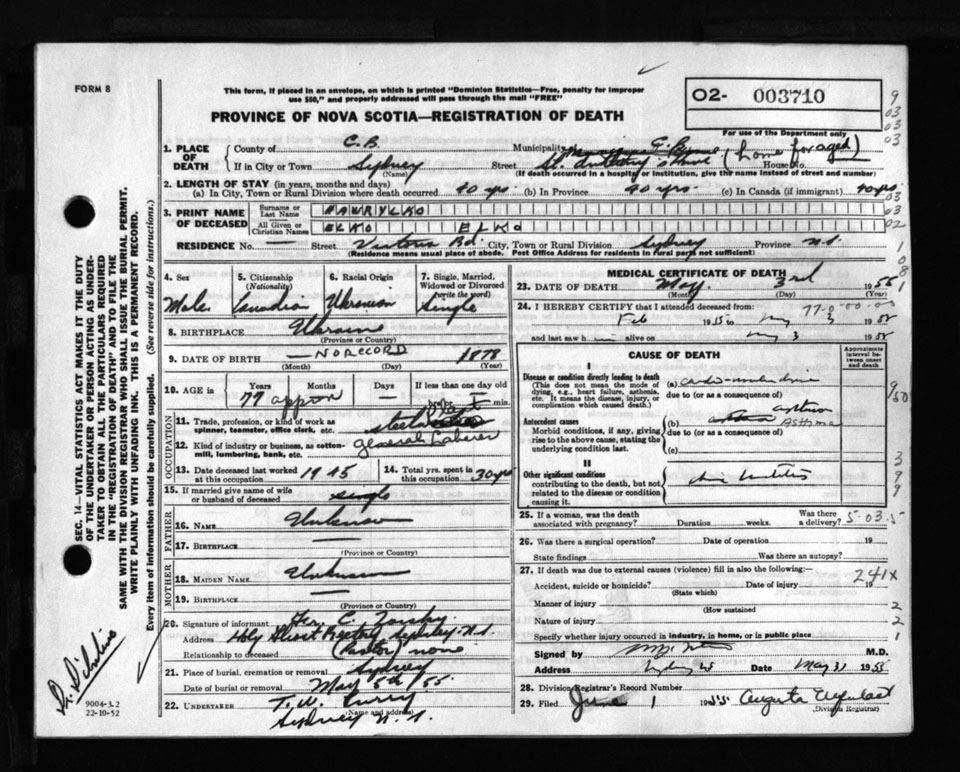 FORM 8
This form, if placed in an envelope, on which is printed "Dominion Statistics—Free, penalty for improper
use $50," and properly addressed will pass through the mail "FREE"
PROVINCE OF NOVA SCOTIA—REGISTRATION OF DEATH
02- 003710
For use of the Department only
1. PLACE OF DEATH County of C.B. Municipality C.B.
If in City or Town Sydney (Name) Street St. Anthony's Home House No. (home for aged)
(If death occurred in a hospital or institution, give the name instead of street and number)
2. LENGTH OF STAY (in years, months and days)
(a) In City, Town or Rural Division where death occurred 40 yrs. (b) In Province 40 yrs. (c) In Canada (if immigrant) 40 yrs.
3. PRINT NAME OF DECEASED Surname or Last Name HAWRYLKO
All Given or Christian Names ELKO ELKO
RESIDENCE No. — Street Victoria Rd. City, Town or Rural Division Sydney Province N.S.
(Residence means usual place of abode. Post Office Address for residents in rural parts not sufficient)
4. Sex Male
5. Citizenship (Nationality) Canadian
6. Racial Origin Ukrainian
7. Single, Married, Widowed or Divorced (write the word) Single
8. BIRTHPLACE Ukraine
(Province or Country)
9. DATE OF BIRTH — NO RECORD 1878
(Month) (Day) (Year)
10. AGE in Years Months Days If less than one day old
77 approx — hr. min.
OCCUPATION
11. Trade, profession, or kind of work as spinner, teamster, office clerk, etc.
12. Kind of industry or business, as cotton-mill, lumbering, bank, etc. general Laborer
13. Date deceased last worked at this occupation 1945
14. Total yrs. spent in this occupation 30 yrs
15. If married give name of wife or husband of deceased single
FATHER
16. NAME Unknown
17. BIRTHPLACE —
(Province or Country)
MOTHER
18. MAIDEN NAME Unknown
19. BIRTHPLACE —
(Province or Country)
20. Signature of informant C.
Address Holy Ghost Rectory, Sydney N.S.
Relationship to deceased (Pastor) none
21. Place of burial, cremation or removal Sydney
Date of burial or removal May 5th / 55
22. UNDERTAKER T. W. Curry
(Name and address)
Sydney N.S.
MEDICAL CERTIFICATE OF DEATH
23. DATE OF DEATH May 3rd 1955
(Month) (Day) (Year)
24. I HEREBY CERTIFY that I attended deceased from 77-0-00-00
Feb 1955 to May 3 1955
and last saw him alive on May 3 1955
CAUSE OF DEATH
Approximate interval between onset and death
I
Disease or condition directly leading to death
(This does not mean the mode of dying, e.g., heart failure, asthenia, etc. It means the disease, injury, or complication which caused death.)
(a)
due to (or as a consequence of)
Antecedent causes
Morbid conditions, if any, giving rise to the above cause, stating the underlying condition last.
(b) asthma ASTHMA
due to (or as a consequence of)
(c)
II
Other significant conditions
contributing to the death, but not related to the disease or condition causing it.
25. If a woman, was the death associated with pregnancy? Duration weeks. Was there a delivery? 5-03.5
26. Was there a surgical operation? Date of operation 19
State findings Was there an autopsy?
27. If death was due to external causes (violence) fill in also the following:—
Accident, suicide or homicide? Date of injury 19 241x
(State which)
Manner of injury
(How sustained
Nature of injury
Specify whether injury occurred in industry, in home, or in public place
Signed by M.D.
Address Date May 3, 1955
28. Division Registrar's Record Number
29. Filed June 1 1955 Augusta
(Division Registrar)
SEC. 14—VITAL STATISTICS ACT MAKES IT THE DUTY
OF THE UNDERTAKER OR PERSON ACTING AS UNDER-
TAKER TO OBTAIN ALL THE PARTICULARS REQUIRED
IN THE "REGISTRATION OF DEATH" AND TO FILE THE
SAME WITH THE DIVISION REGISTRAR WHO SHALL ISSUE THE BURIAL PERMIT.
WRITE PLAINLY WITH UNFADING INK. THIS IS A PERMANENT RECORD.
Every item of information should be carefully supplied. (See reverse side for instructions.)
9004-3.2
22-10-52